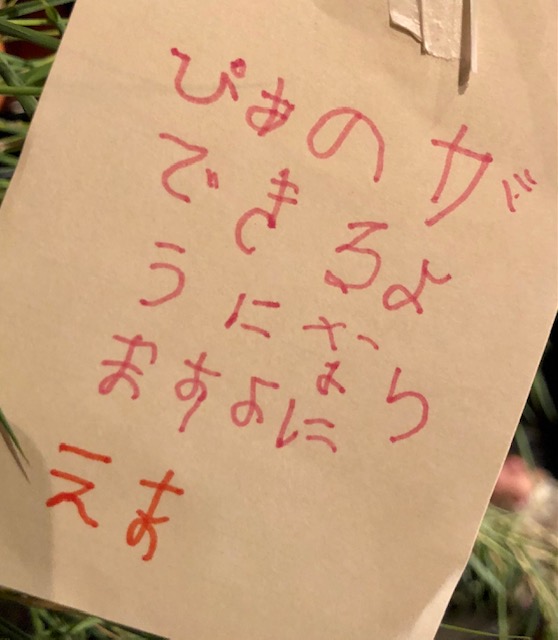 ぴあのが
できるよ
うになり
ますよに
えま